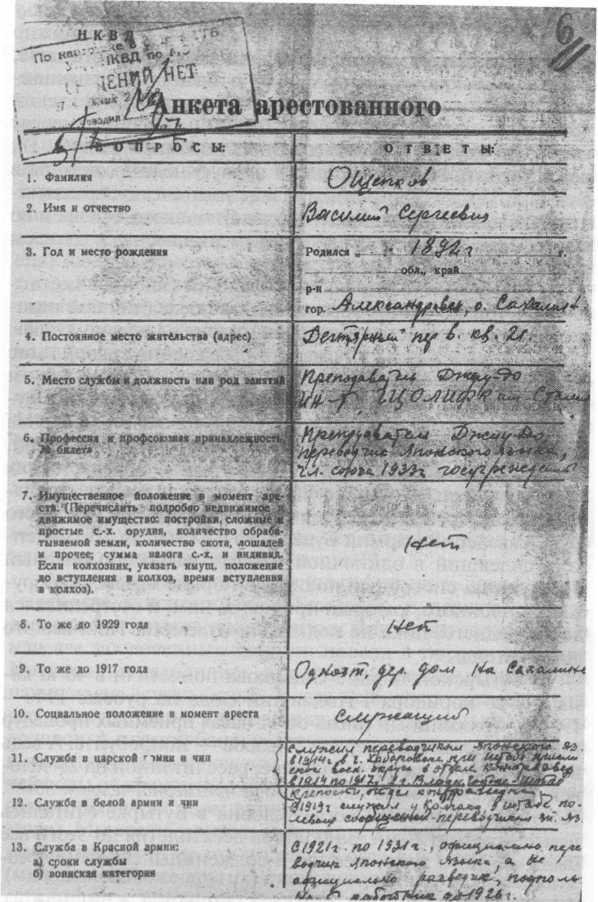 6
НКВД
СВЕДЕНИЙ НЕТ
Анкета арестованного
ВОПРОСЫ: ОТВЕТЫ:
1. Фамилия Ощепков
2. Имя и отчество Василий Сергеевич
3. Год и место рождения Родился „ " 1892 г.
обл., край
р-н
гор. Александровск, о. Сахалин
4. Постоянное место жительства (адрес) Дегтярный пер 8. кв. 21.
5. Место службы и должность или род занятий Преподаватель Джиу-до
ГЦОЛИФК им Сталина
6. Профессия и профсоюзная принадлежность, Преподаватель Джиу-До,
№ билета переводчик Японского языка,
чл. союза 1933г госучреждений
7. Имущественное положение в момент аре-
ста. (Перечислить подробно недвижимое и
движимое имущество: постройки, сложные и
простые с.-х. орудия, количество обраба-
тываемой земли, количество скота, лошадей
и прочее; сумма налога с.-х. и индивид.
Если колхозник, указать имущ. положение
до вступления в колхоз, время вступления
в колхоз). нет
8. То же до 1929 года нет
9. То же до 1917 года Одноэт. дер. дом на Сахалине
10. Социальное положение в момент ареста Служащий
11. Служба в царской армии и чин Служил переводчиком Японского яз.
в 1914г. в г. Хабаровске при штабе
воен. округа в отделе контрразвед
в 1914 по 1917
крепости,
12. Служба в белой армии и чин В 1919г служил у Колчака, в штабе по-
левых сообщений переводчиком яп. яз.
13. Служба в Красной армии: С 1921г. по 1931г., официально пере-
а) сроки службы водчик Японского языка, а не
б) воинская категория официально разведчик, подполь-
работник до 1926г.